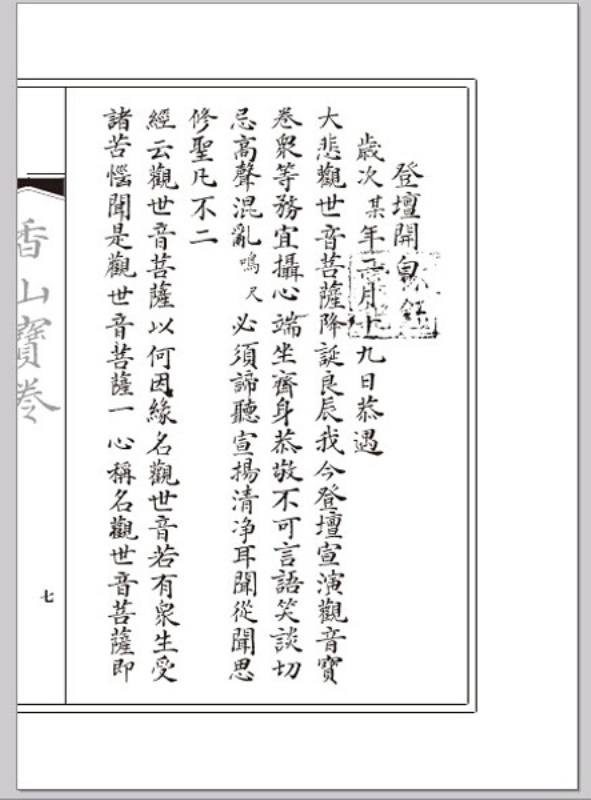 登壇開白
歲次某年二月十九日恭遇
大悲觀世音菩薩降誕良辰我今登壇宣演觀音寶
卷衆等務宜攝心端坐齊身恭敬不可言語笑談切
忌高聲混亂鳴尺必須諦聽宣揚清净耳聞從聞思
修聖凡不二
經云觀世音菩薩以何因緣名觀世音若有衆生受
諸苦惱聞是觀世音菩薩一心稱名觀世音菩薩即
香山寶卷
七